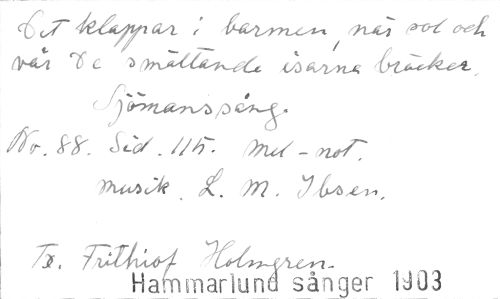 Det klappar i barmen, när sol och
vår De smältande isarna bräcker.
Sjömanssång.
No. 88. Sid. 115. Mel-not.
musik. L. M. Ibsen.
Tx. Frithiof Holmgren.
Hammarlund sånger 1903